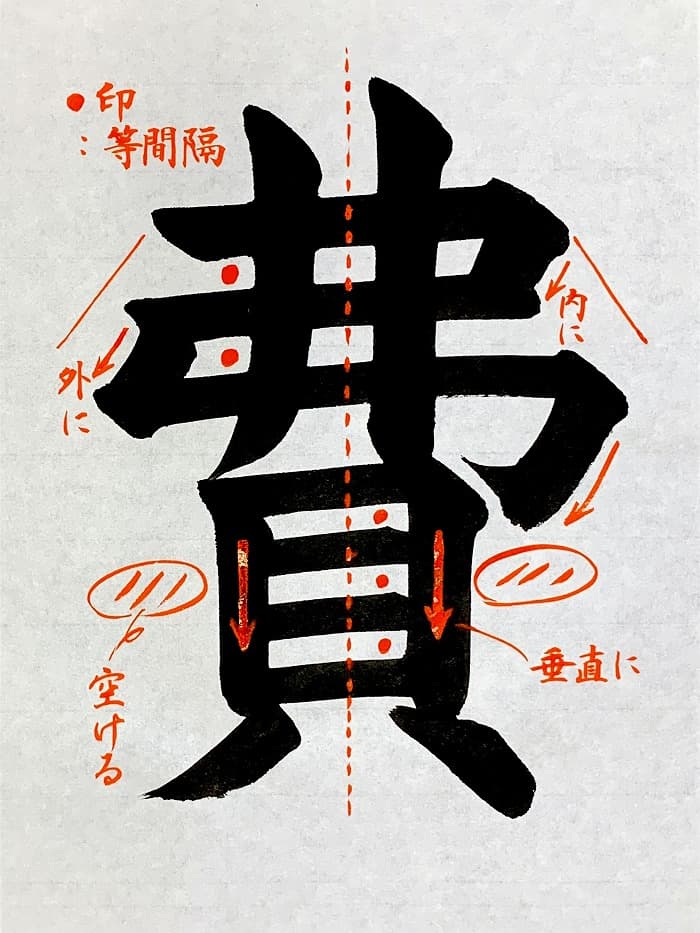 ●印
：等間隔
費
内に
外に
空ける
垂直に